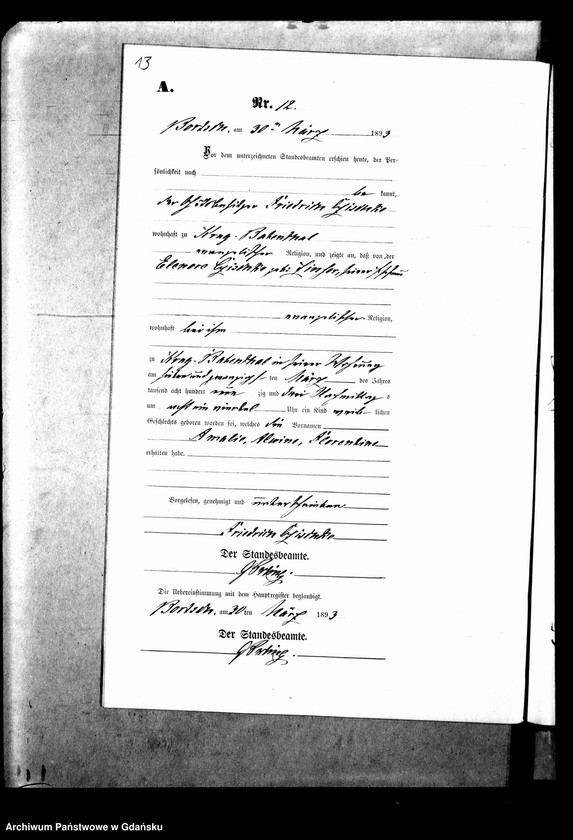 13
A.
Nr. 12.
am 30ten März 1893
Vor dem unterzeichneten Standesbeamten erschien heute, der Per-
sönlichkeit nach
be kannt,
der Friedrich
wohnhaft zu Babenthal
evangelischer Religion, und zeigte an, daß von der
Elenore geb. seiner Ehefrau
evangelischer Religion,
wohnhaft bei ihm
zu Babenthal in seiner Wohnung
am siebenundzwanzigsten März des Jahres
tausend acht hundert neun zig und drei Nachmittag s
um acht ein viertel Uhr ein Kind weib lichen
Geschlechts geboren worden sei, welches die Vornamen
Amalie, Alwine, Florentine
erhalten habe.
Vorgelesen, genehmigt und unterschrieben
Friedrich
Der Standesbeamte.
Die Uebereinstimmung mit dem Hauptregister beglaubigt.
am 30 ten März 1893
Der Standesbeamte.
Archiwum Państwowe w Gdańsku